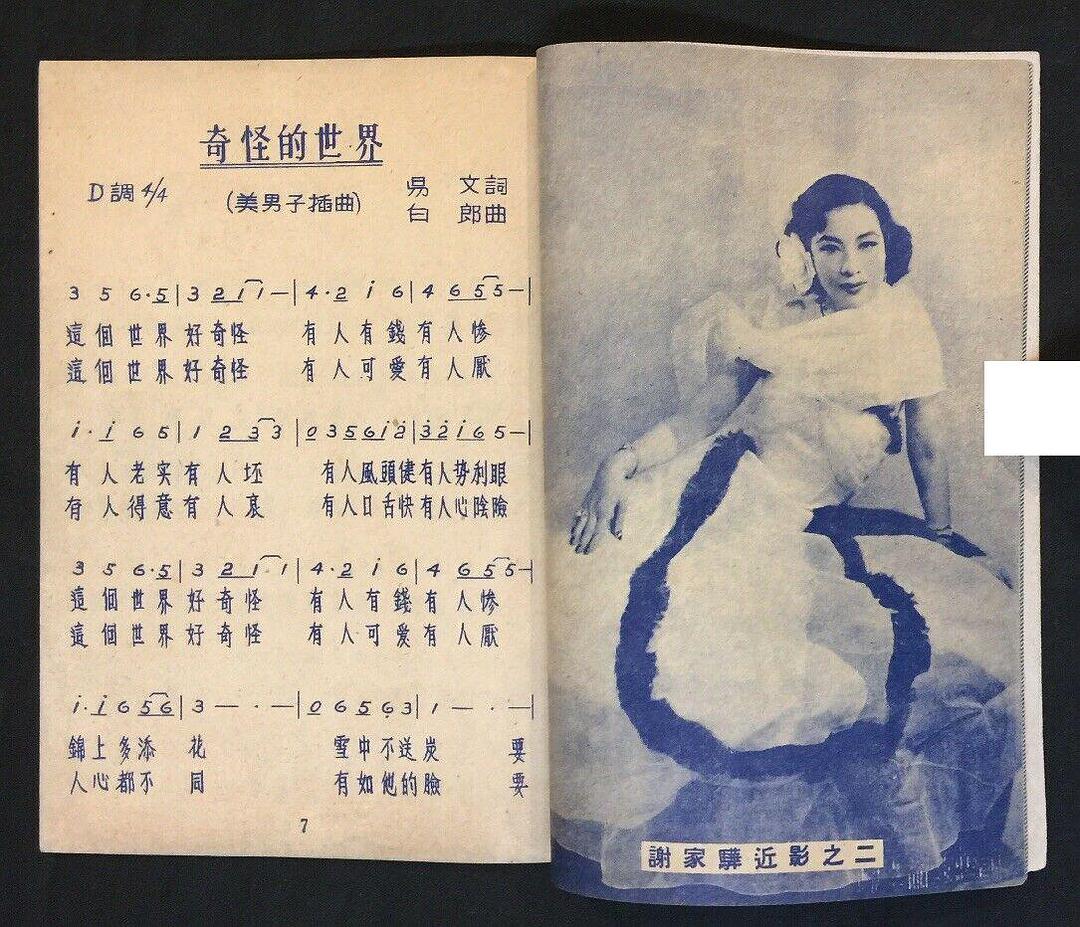 奇怪的世界
D調 4/4
(美男子插曲)
易 文詞
白 郎曲
3 5 6·5|3 2 i 1—|4·2 i 6|4 6 5 5—|
這個世界好奇怪 有人有錢有人慘
這個世界好奇怪 有人可愛有人厭
i·i 6 5|1 2 3 3|0 3 5 6 i 2|3 2 i 6 5—|
有人老实有人坯 有人風頭健有人势利眼
有人得意有人哀 有人口舌快有人心陰險
3 5 6·5|3 2 1 1|4·2 i 6|4 6 5 5—|
這個世界好奇怪 有人有錢有人慘
這個世界好奇怪 有人可愛有人厭
i·i 6 5 6|3 — · —|0 6 5 6 3|1 — · —|
錦上多添 花 雪中不送炭 要
人心都不 同 有如他的臉 要
7
謝家驊近影之二